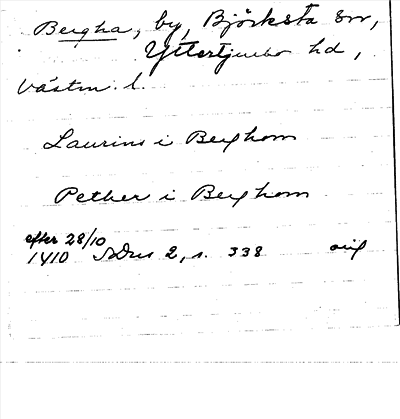 Bergha, by, Björksta sn,
Yttertjurbo hd,
Västm. l.
Laurins i Berghom
Pether i Berghom
efter 28/10
1410 SDns 2, s. 338 orig